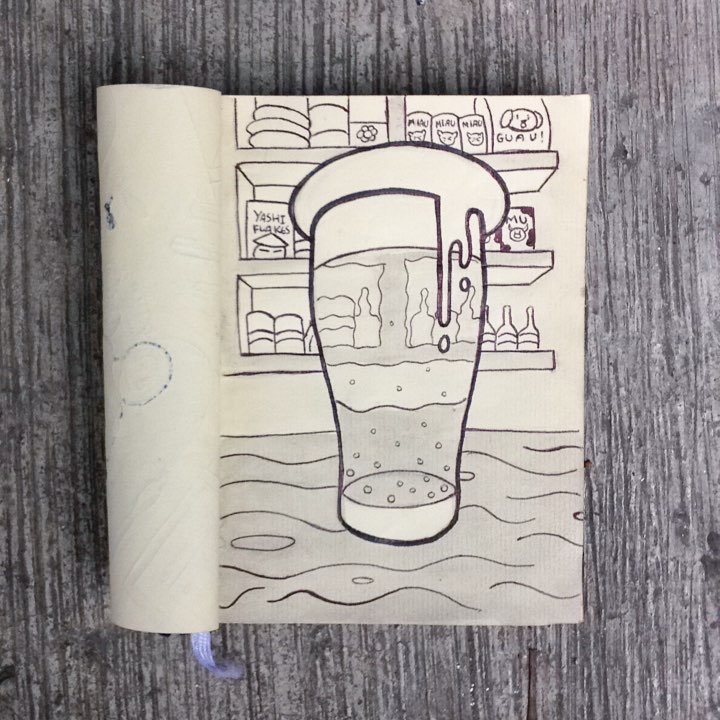 MIAU MIAU MIAU
GUAU!
YASHI
FLAKES
MU